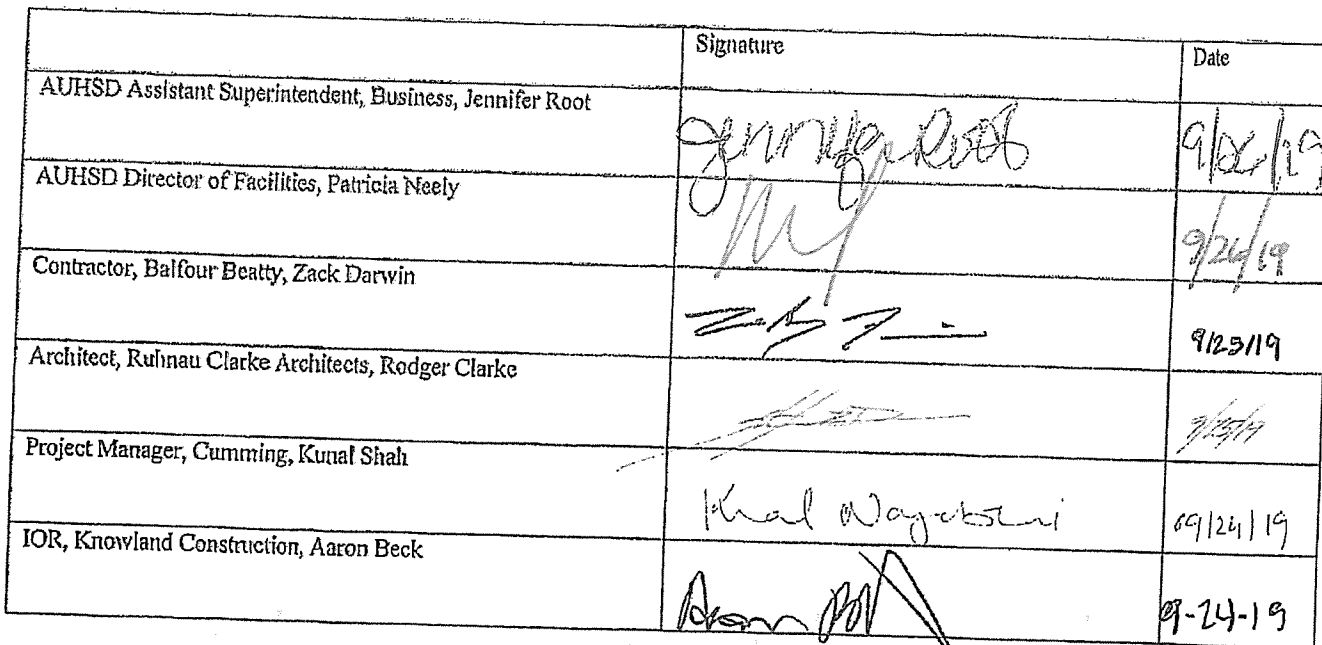 Signature Date
AUHSD Assistant Superintendent, Business, Jennifer Root Jennifer Root 9/26/19
AUHSD Director of Facilities, Patricia Neely 9/26/19
Contractor, Balfour Beatty, Zack Darwin 9/23/19
Architect, Ruhnau Clarke Architects, Rodger Clarke 9/25/19
Project Manager, Cumming, Kunal Shah 09/24/19
IOR, Knowland Construction, Aaron Beck Aaron 9-24-19